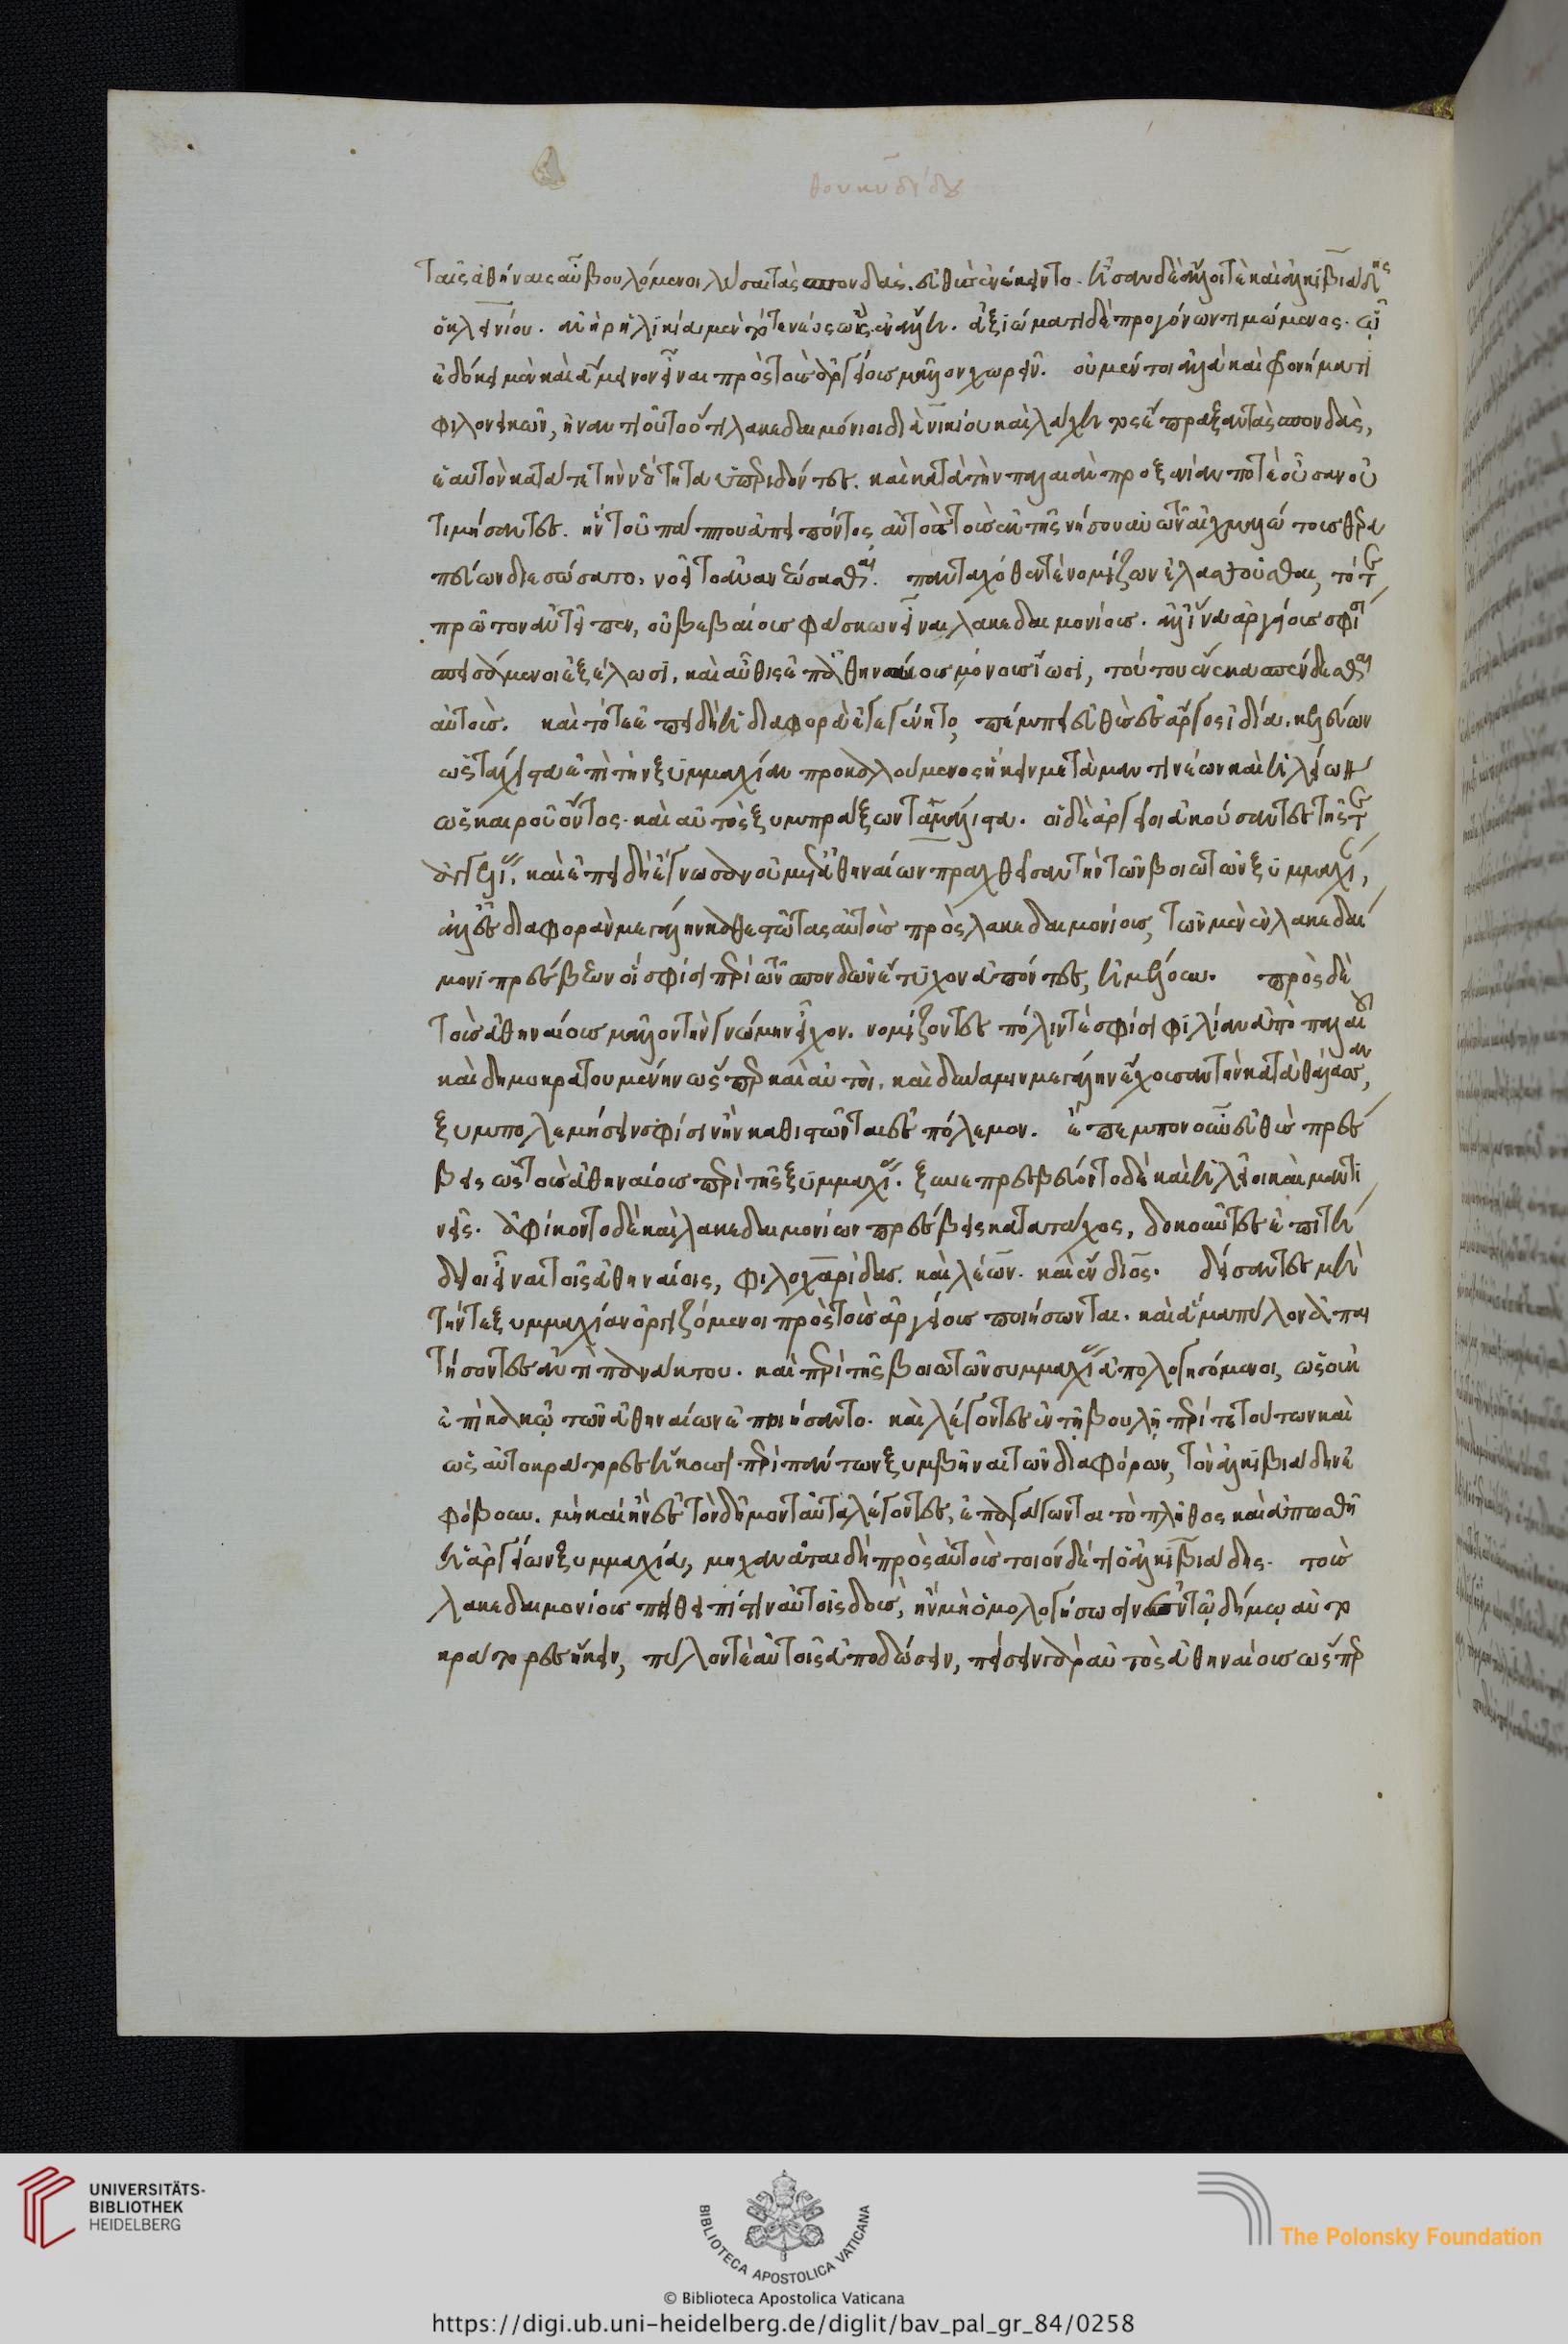 θουκυδίδου
ταῖς ἀθήναις αὖ βουλόμενοι λῦσαι τὰς σπονδὰς, εὐθὺς ἐνέκειντο. ἦσαν δὲ ἄλλοι τὲ καὶ ἀλκιβιάδης
ὁ κλεινίου. ἀνὴρ ἡλικία μὲν τότε νέος ὡς ἐν ἄλλη. ἀξιώματι δὲ προγόνων τιμώμενος. ὧ
ἐδόκει μὲν καὶ ἄμεινον εἶναι πρὸς τοὺς ἀργείους μᾶλλον χωρεῖν. οὐ μέντοι ἀλλὰ καὶ φρονήματι
φιλονεικῶν, ἠναντιοῦτο ὅτι λακεδαιμόνιοι διὰ νικίου καὶ λάχητος ἔπραξαν τὰς σπονδὰς,
ἑαυτὸν κατά τε τὴν νεότητα ὑπεριδόντες. καὶ κατὰ τὴν παλαιὰν προξενίαν ποτὲ οὖσαν οὐ
τιμήσαντες. ἣν τοῦ πάππου ἀπειπόντος αὐτὸς τοὺς ἐκ τῆς νήσου αὐτῶν αἰχμαλώτους θερα
πεύων διενοεῖτο ἀνανεώσασθαι. πανταχόθεν τὲ νομίζων ἐλασσοῦσθαι, τότε
πρῶτον ἀντεῖπεν, οὐ βεβαίους φάσκων εἶναι λακεδαιμονίους. ἀλλ' ἵνα ἀργείους σφίσι
σπεισάμενοι ἐξέλωσι, καὶ αὖθις ἐπ' ἀθηναίους μόνους ἴωσι, τούτου ἕνεκα σπένδεσθαι
αὐτούς. καὶ τότε ἐπειδὴ ἡ διαφορὰ ἐγεγένητο, πέμπει εὐθὺς ἐς ἄργος ἰδία. κελεύων
ὡς τάχιστα ἐπὶ τὴν ξυμμαχίαν προκαλουμένους ἥκειν μετὰ μαντινέων καὶ ἠλείων
ὡς καιροῦ ὄντος. καὶ αὐτὸς ξυμπράξων τὰ μάλιστα. οἱ δὲ ἀργεῖοι ἀκούσαντες τῆς τε
ἀγγελίας, καὶ ἐπειδὴ ἔγνωσαν οὐ μετ' ἀθηναίων πραχθεῖσαν τὴν τῶν βοιωτῶν ξυμμαχίαν,
ἀλλ' ἐς διαφορὰν μεγάλην καθεστῶτας αὐτοὺς πρὸς λακεδαιμονίους, τῶν μὲν ἐν λακεδαί
μονι πρέσβεων οἵ σφίσι περὶ τῶν σπονδῶν ἔτυχον ἀπόντες, ἠμέλουν. πρὸς δὲ
τοὺς ἀθηναίους μᾶλλον τὴν γνώμην εἶχον. νομίζοντες πόλιν τὲ σφίσι φιλίαν ἀπὸ παλαιοῦ
καὶ δημοκρατουμένην ὥσπερ καὶ αὐτοὶ, καὶ δύναμιν μεγάλην ἔχουσαν τὴν κατὰ θάλασσαν,
ξυμπολεμήσειν σφίσιν ἢν καθιστῶνται ἐς πόλεμον. ἔπεμπον οὖν εὐθὺς πρέσ
βεις ὡς τοὺς ἀθηναίους περὶ τῆς ξυμμαχίας. ξυνεπρεσβεύοντο δὲ καὶ ἠλεῖοι καὶ μαντι
νεῖς. ἀφίκοντο δὲ καὶ λακεδαιμονίων πρέσβεις κατὰ τάχος, δοκοῦντες ἐπιτή
δειοι εἶναι τοῖς ἀθηναίοις, φιλοχαρίδας. καὶ λέων. καὶ ἔνδιος. δείσαντες μὴ
τήν τε ξυμμαχίαν ὀργιζόμενοι πρὸς τοὺς ἀργείους ποιήσωνται. καὶ ἅμα πύλον ἀπαι
τήσοντες ἀντὶ πανάκτου. καὶ περὶ τῆς βοιωτῶν συμμαχίας ἀπολογησόμενοι, ὡς οὐκ
ἐπὶ κακῷ τῶν ἀθηναίων ἐποιήσαντο. καὶ λέγοντες ἐν τῇ βουλῇ περί τε τούτων καὶ
ὡς αὐτοκράτορες ἥκουσι περὶ πάντων ξυμβῆναι τῶν διαφόρων, τὸν ἀλκιβιάδην ἐ
φόβουν. μὴ καὶ ἢν ἐς τὸν δῆμον ταῦτα λέγοντες, ἐπαγάγωνται τὸ πλῆθος καὶ ἀπωσθῆ
ἡ ἀργείων ξυμμαχία, μηχανᾶται δὴ πρὸς αὐτοὺς τοιόνδέ τι ὁ ἀλκιβιάδης. τοὺς
λακεδαιμονίους πείθει πίστιν αὐτοῖς δοὺς, ἢν μὴ ὁμολογήσωσιν ἐν τῷ δήμῳ αὐτο
κράτορες ἥκειν, πύλον τὲ αὐτοῖς ἀποδώσειν, πείσειν γὰρ αὐτὸς ἀθηναίους ὥσπερ
UNIVERSITÄTS-
BIBLIOTHEK
HEIDELBERG
BIBLIOTECA APOSTOLICA VATICANA
The Polonsky Foundation
© Biblioteca Apostolica Vaticana
https://digi.ub.uni-heidelberg.de/diglit/bav_pal_gr_84/0258